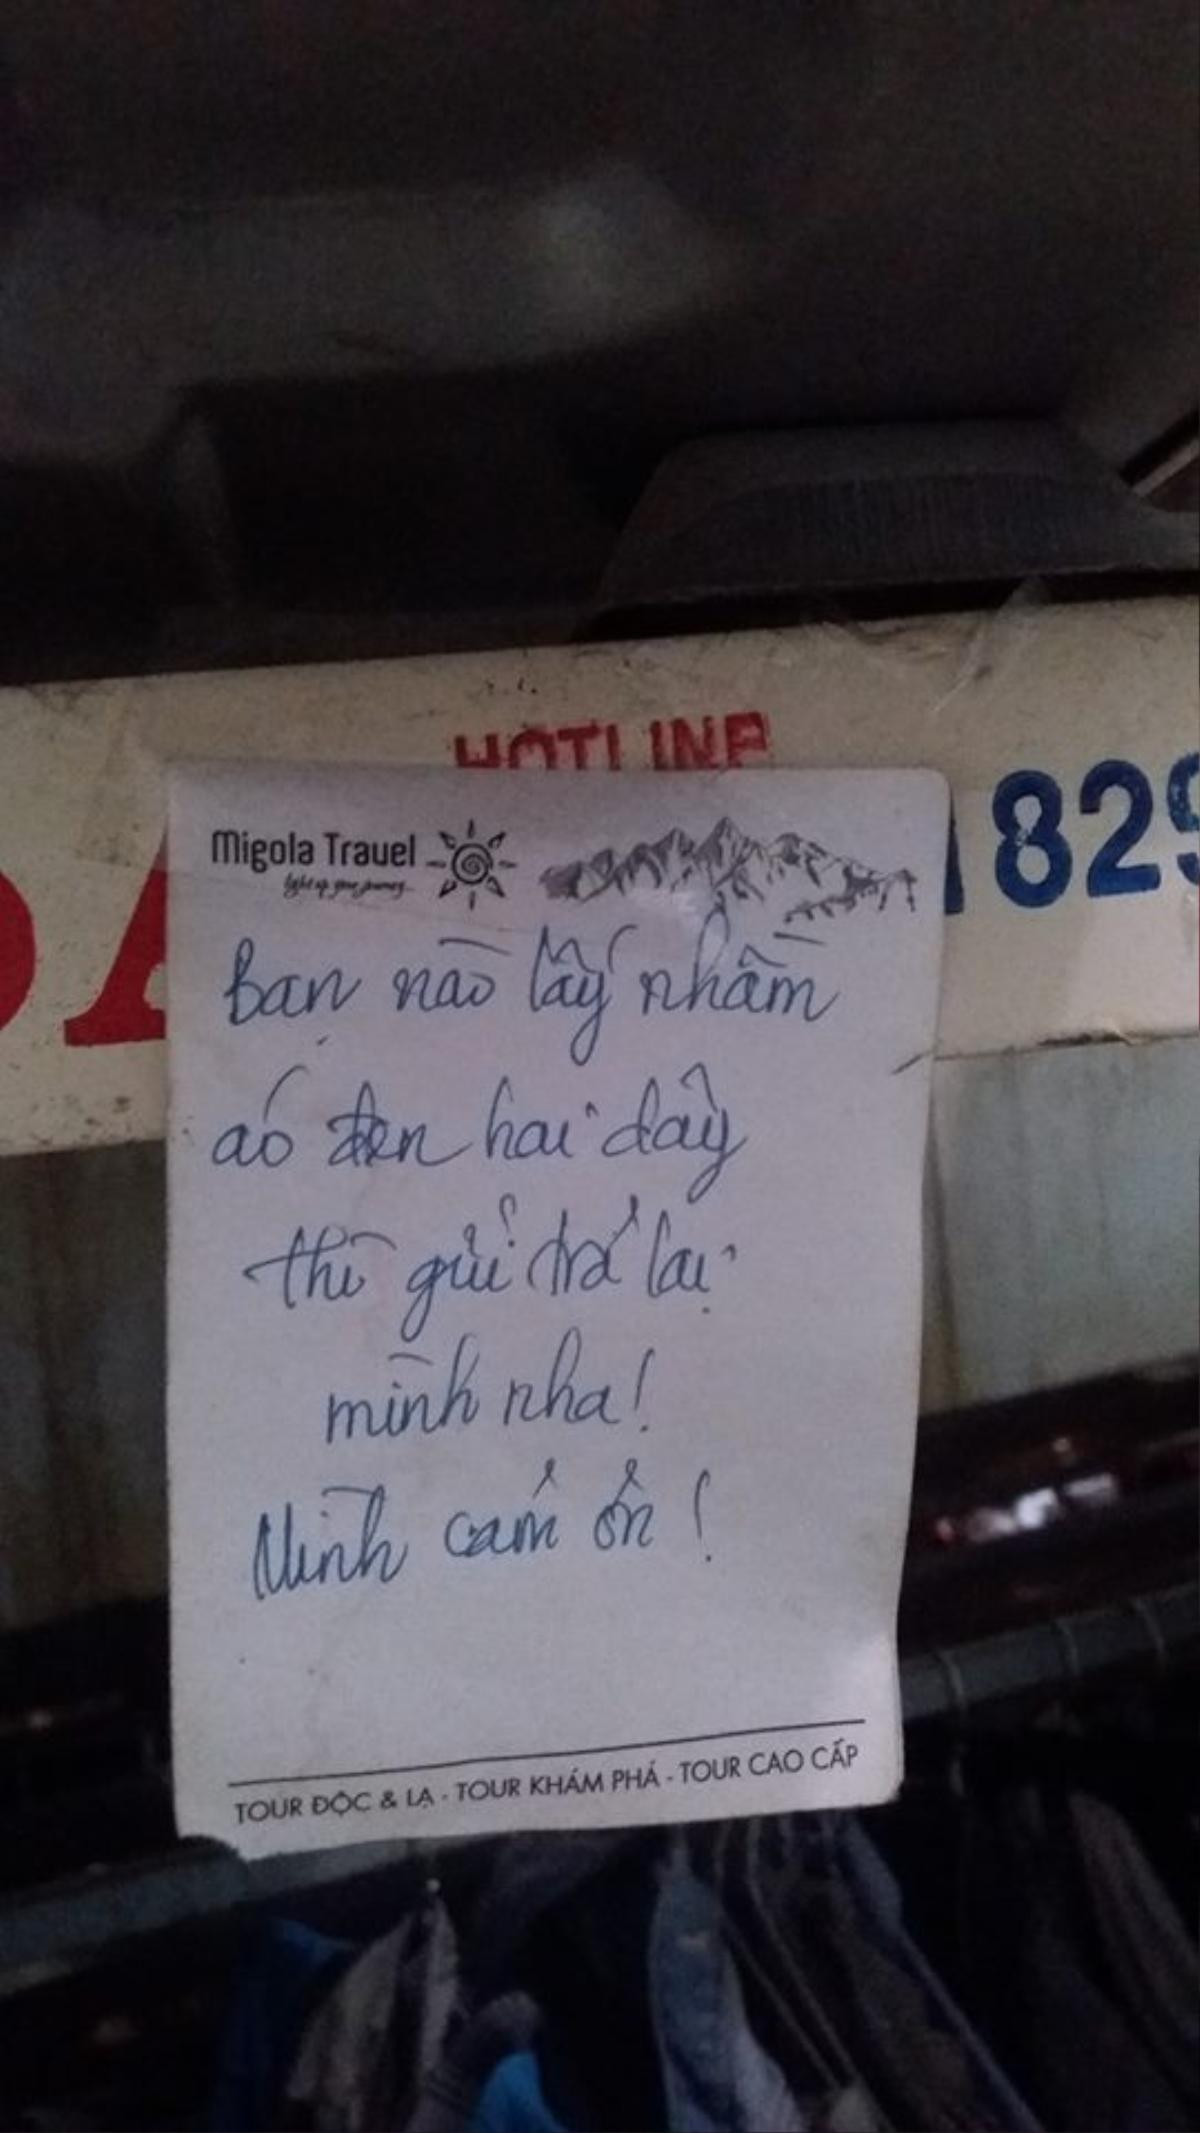 HOTLINE
829
Migola Travel
light up your journey...
Bạn nào lấy nhầm
áo đen hai dây
thì gửi trả lại
mình nha!
Mình cảm ơn!
TOUR ĐỘC & LẠ - TOUR KHÁM PHÁ - TOUR CAO CẤP